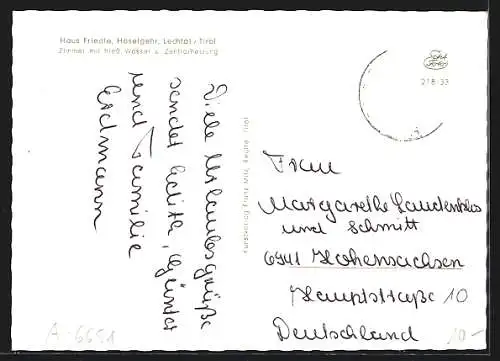 Haus Friedle, Häselgehr, Lechtal / Tirol
Zimmer mit fließ. Wasser u. Zentralheizung
Viele Urlaubsgrüße
sendet Edith, Günter
und Familie
Erdmann
Kunstverlag Franz Milz, Reutte - Tirol
218-33
Frau
Margarethe
und Schmitt
6941 Hohensachsen
Hauptstraße 10
Deutschland
A-6651
10.-